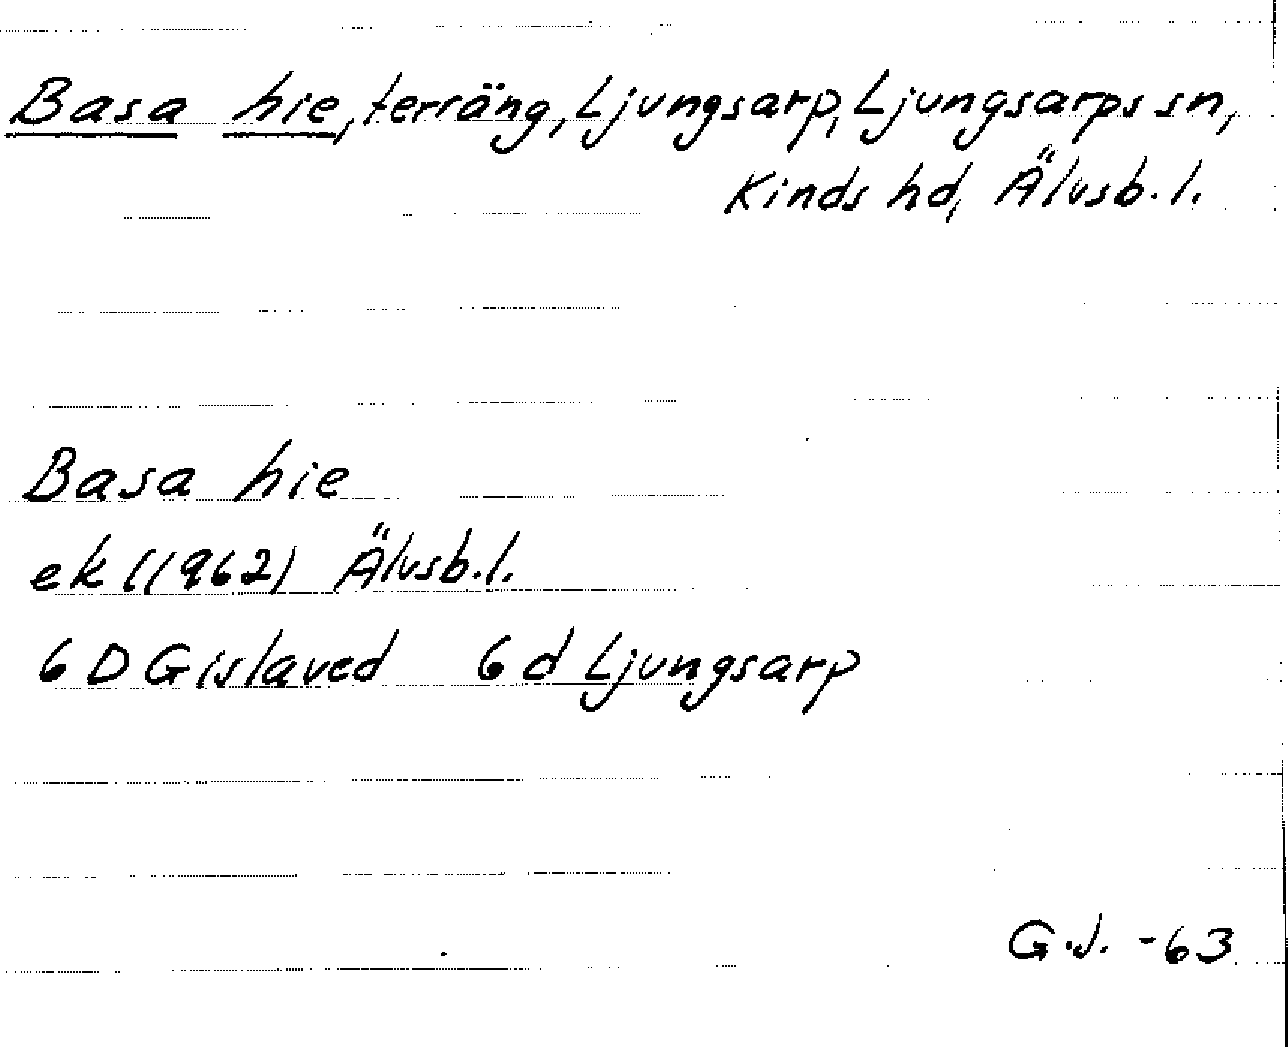 Basa hie, terräng, Ljungsarp, Ljungsarps sn,
Kinds hd, Älvsb. l.
Basa hie
ek (1962) Älvsb. l.
6 D Gislaved 6 d Ljungsarp
G.J. -63